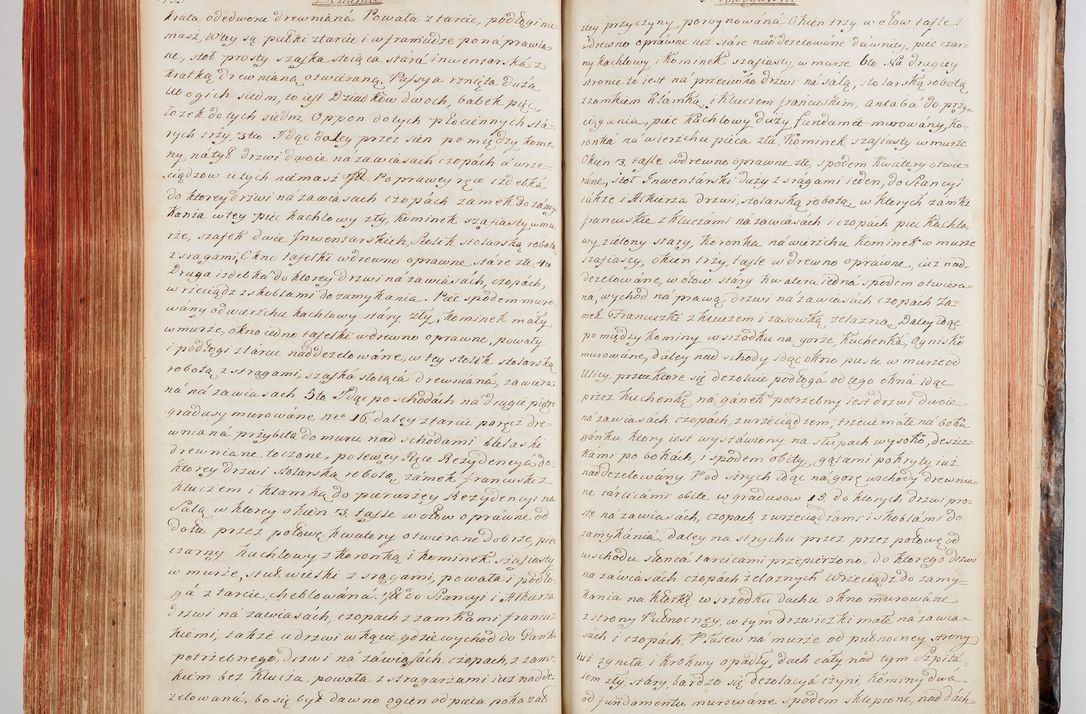 krata odedwora drewniana Powała ztarcic, podłogi nie
masz, Wtey są pułki ztarcic i w framudze ponaprawia
ne, stoł prosty szafka stoiąca stara inwentarska z
kratką drewnianą otwieraną. Passya rznięta duża
Ubogich siedm, to iest Dziadków dwoch, babek pięć,
łożek do tych siedm, Oppon do tych płociennych sta,
rych trzy. 3tio Idąc daley przez sień pomiędzy komi
ny, na tył drzwi dwoie na zawiasach czopach a wrze
ciądzow u tych niemasz Po prawey ręce izdebka
do ktorey drzwi na zawiasach czopach zamek do zamy
kania w tey piec kachlowy zły, kominek szafiasty w mu
rze, szafek dwie Inwentarskich, stolik stolarską robotą
z sragami, Okno tafelki w drewno oprawne stare złe, 4to
Druga izdebka do ktorey drzwi na zawiasach, czopach,
wrzeciądz z skoblami do zamykania. Piec spodem muro,
wany od wierzchu kachlowy stary zły, kominek mały
w murze, okno iedno tafelki w drewno oprawne, powały
i podłogi ztarcic naddezelowane, w tey stolik stolarską
robotą z sragami, szafka stoiąca drewniana, zawiera
na na zawiasach 5to Idąc po schodach na drugie piętro
gradusy murowane nro 16, daley ztarcic poręcz dre,
wniana przybita do muru nad schodami balaski
drewniane toczone, po lewey Ręce Rezydencya do
ktorey drzwi stolarską robotą, zamek francuski z
kluczem i klamką do pierwszey Rezydencyi na
Salą w ktorey okien 3. tafle w ołow oprawne od
dołu przez połowę kwatery otwierane dobrze, piec
czarny kachlowy z koronką i kominek szafiasty
w murze, stuł wielki z sragami, powała i podło,
ga z tarcic, cheblowana. do Stancyi i Alkierza
drzwi na zawiasach, czopach z zamkami francuz
kiemi, takze u drzwi w kącie gdzie wychod do Ganku
potrzebnego, drzwi na zawiasach, czopach z zam
kiem bez klucza powała z stragarzami iuz nadde
zelowana, bo się był dawno ogien od pieca pokazał
tey przyczyny, poroynowana Okien trzy w ołow tafle i
w drewno oprawne iuz stare naddezelowane dawniey, piec czar
ny kachlowy, kominek szafiasty, w murze 6to Na drugiey
stronie to iest na przeciwko drzwi na salą, stolarską robotą
z zamkiem klamką i kluczem francuskim, antaba do przy
ciągania, piec kachlowy duży fundament murowany, Ko
ronka na wierzchu pieca zła kominek szafiasty w murze
Okien 3. tafle w drewno oprawne złe, spodem kwatery otwie
rane, stoł Inwentarski duży z sragami ieden, do Stancyi
takze i Alkierza drzwi, stolarską robotą, w ktorych zamki
francuskie z kluczami na zawiasach i czopach piec kachlo
wy zielony stary, koronka na wierzchu kominek w murze
szafiasty, okien trzy, tafle w drewno oprawne, iuz nad
dezelowane, w ołow stary kwatera iedna spodem otwiera
na, wychod na prawą, drzwi na zawiasach czopach Za
mek Francuzki z kluczem i zasowką zelazną. Daley idąc
pomiędzy kominy w srzodku na gorze, kuchenka, Ognisko
murowane, daley nad schody idąc okno puste w murze od
Ulicy, przez ktore się dezoluie podłoga od tego okna idąc
przez kuchenkę na ganek potrzebny iest drzwi dwoie
na zawiasach czopach, z wrzeciądzem, trzecie małe na boku
ganku ktory iest wystawiony na słupach wysoko, deszcz,
kami po bokach, i spodem obity, gątami pokryty iuz
naddezelowany. Pod strych idąc na gorę wschody drewnia
ne tarcicami obite w gradusow 15, do ktorych drzwi pro
ste na zawiasach, czopach z wrzeciądzami i skoblami do
zamykania, daley na strychu przez przez połowę od
wschodu słonca tarcicami przepierzono, do ktorego drzwi
na zawiasach czopach zelaznych wrzeciądz do zamy,
kania na kłotkę w srzodku dachu okno murowane
z strony Pułnocney, w tym drzwiczki małe na zawia,
sach i czopach. Płatew na murze od pułnocney strony
iuz zgniła i krokwy opadły, dach cały nad tym Szpita
lem zły, stary, bardzo się dezolacya czyni, kominy dwa
od fundamentu murowane spodem sklepione, nad dach